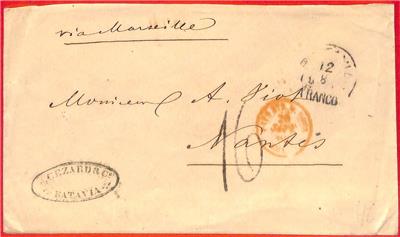 via Marseille
12
FRANCO
Monsieur A.
Nantes
16
CEZARD & Co
BATAVIA